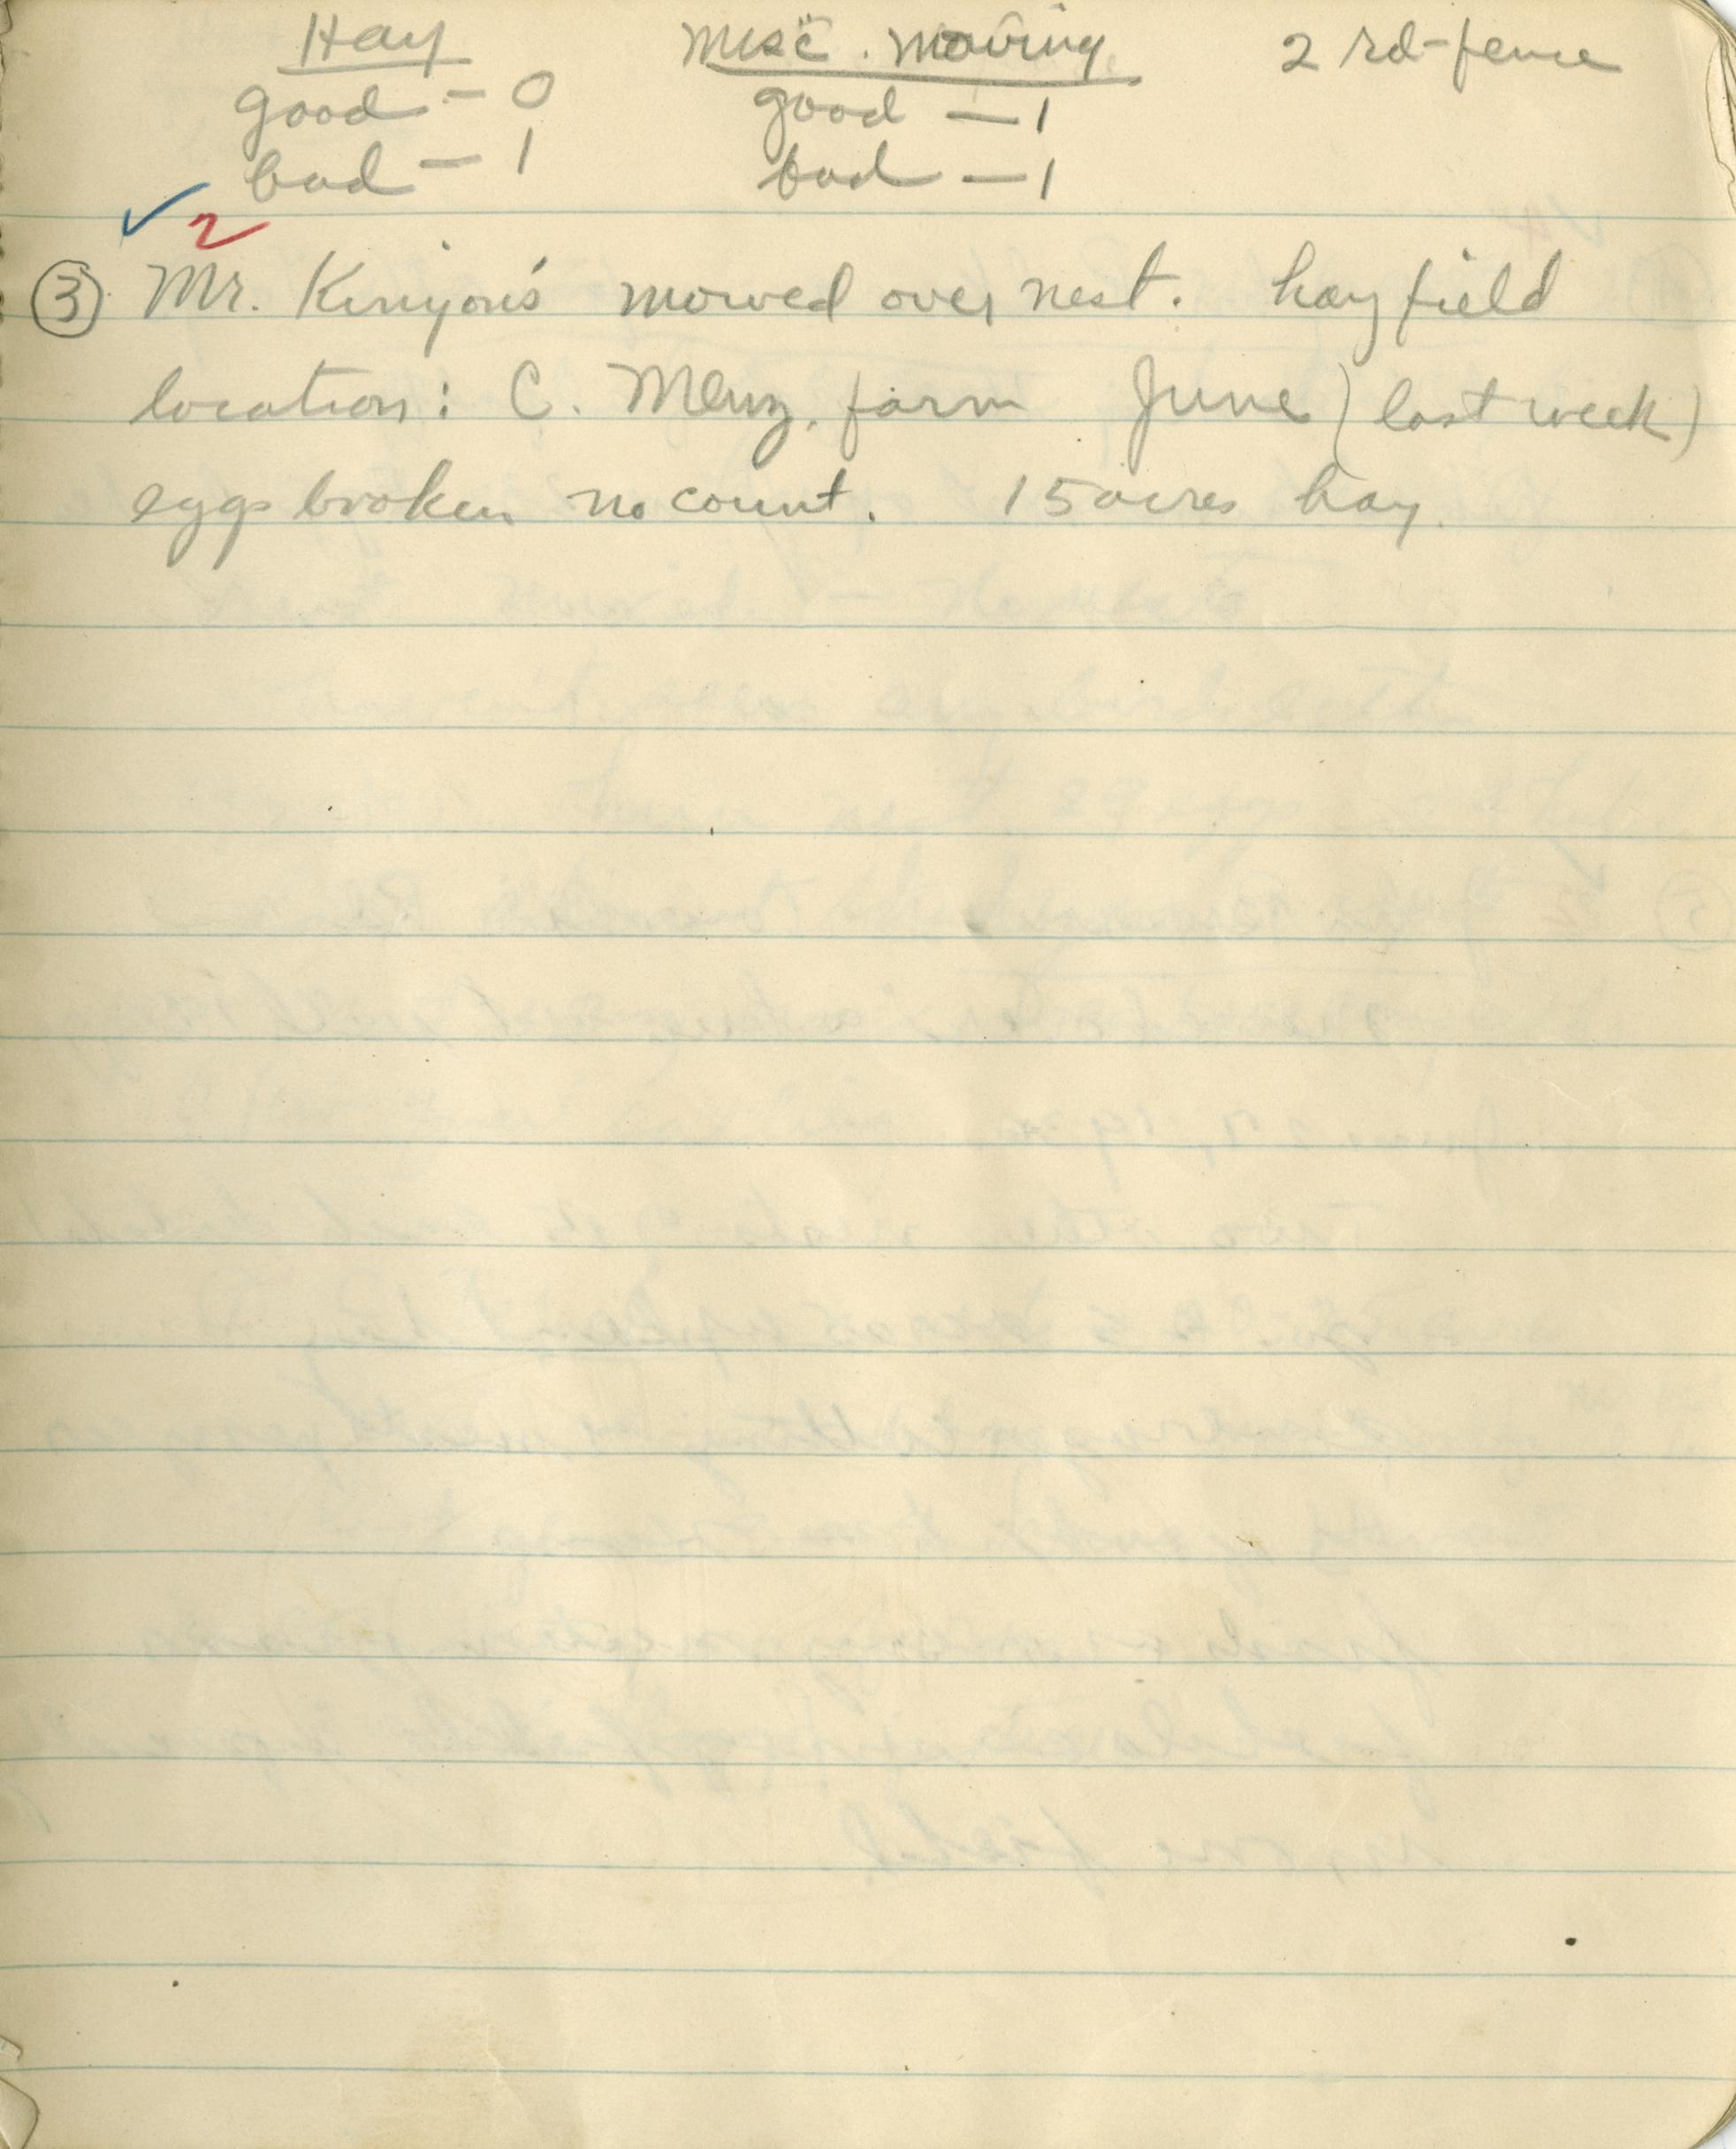 Hay Misc. Mowing 2 rd-fence
good - 0 good - 1
bad - 1 bad - 1
✓ 2
③ Mr. Kinyon's mowed over nest. hayfield
location: C. Menz farm June (last week)
eggs broken no count. 15 acres hay.